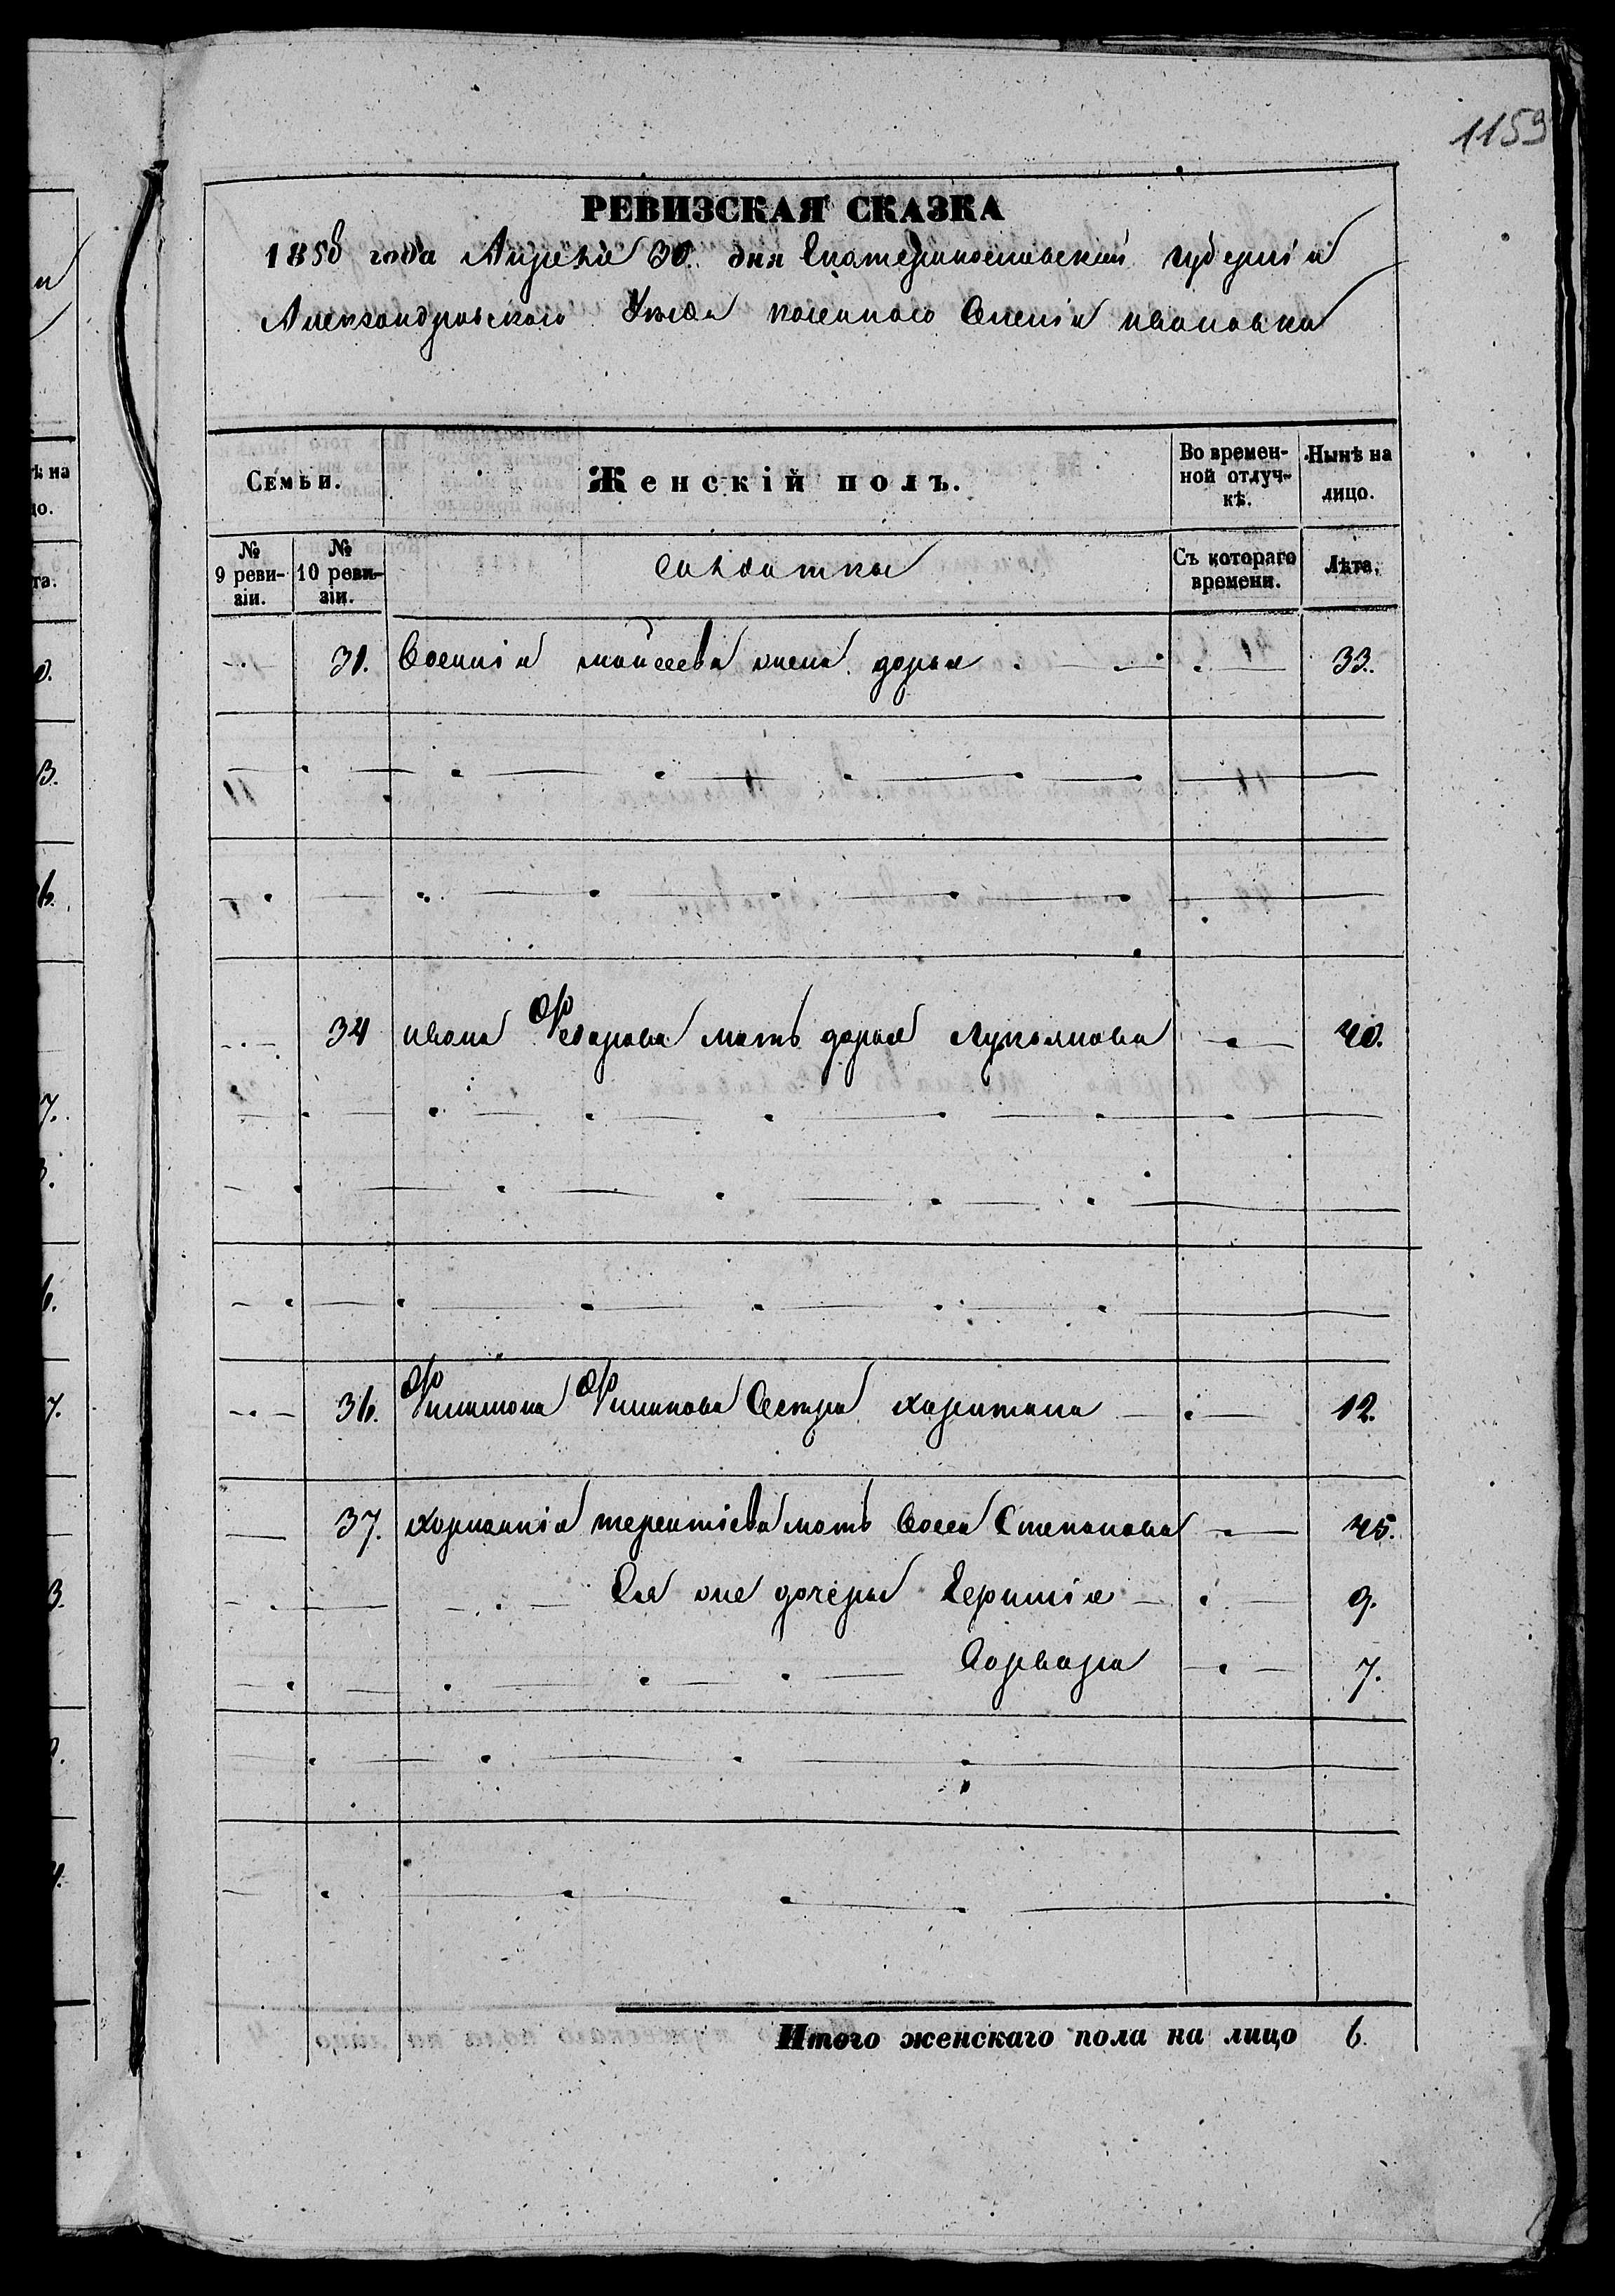 1159
РЕВИЗСКАЯ СКАЗКА
1858 года Апреля 30. дня Екатеринославской губерніи
Александровского Уезда казенного Селенія ивановки
Семьи.
Женскій полъ.
Во времен-
ной отлуч-
кѣ.
Нынѣ на
лицо.
№
9 реви-
зіи.
№
10 реви-
зіи.
Салдатки
Съ котораго
времени.
Лѣта.
31. Евсенія мойсеева жена дарья 33.
34 ивана Фёдарова мать дарья Лукьянова 40.
36. Филимона Филипова Сестра харитина 12.
37. харлампія терентіева мать Васса Степанова 45.
Ея же дочерьи 9.
Варвара 7.
Итого женскаго пола на лицо 6.